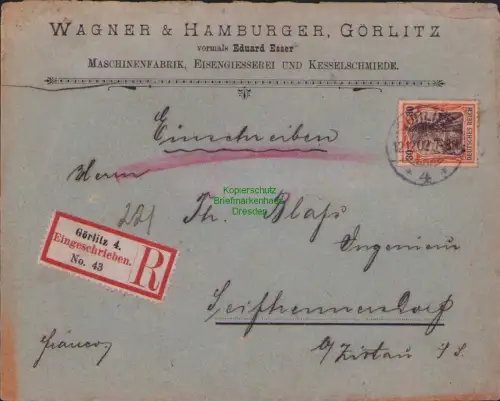 WAGNER & HAMBURGER, GÖRLITZ
vormals Eduard Esser
MASCHINENFABRIK, EISENGIESSEREI UND KESSELSCHMIEDE.
Einschreiben
30 30
DEUTSCHES REICH
4
Herrn
Kopierschutz
Briefmarkenhaus
Dresden
221
Th. Blaß
Ingenieur
Görlitz 4.
Eingeschrieben.
No. 43
R
Seifhennersdorf
franco
b/Zittau i/S.